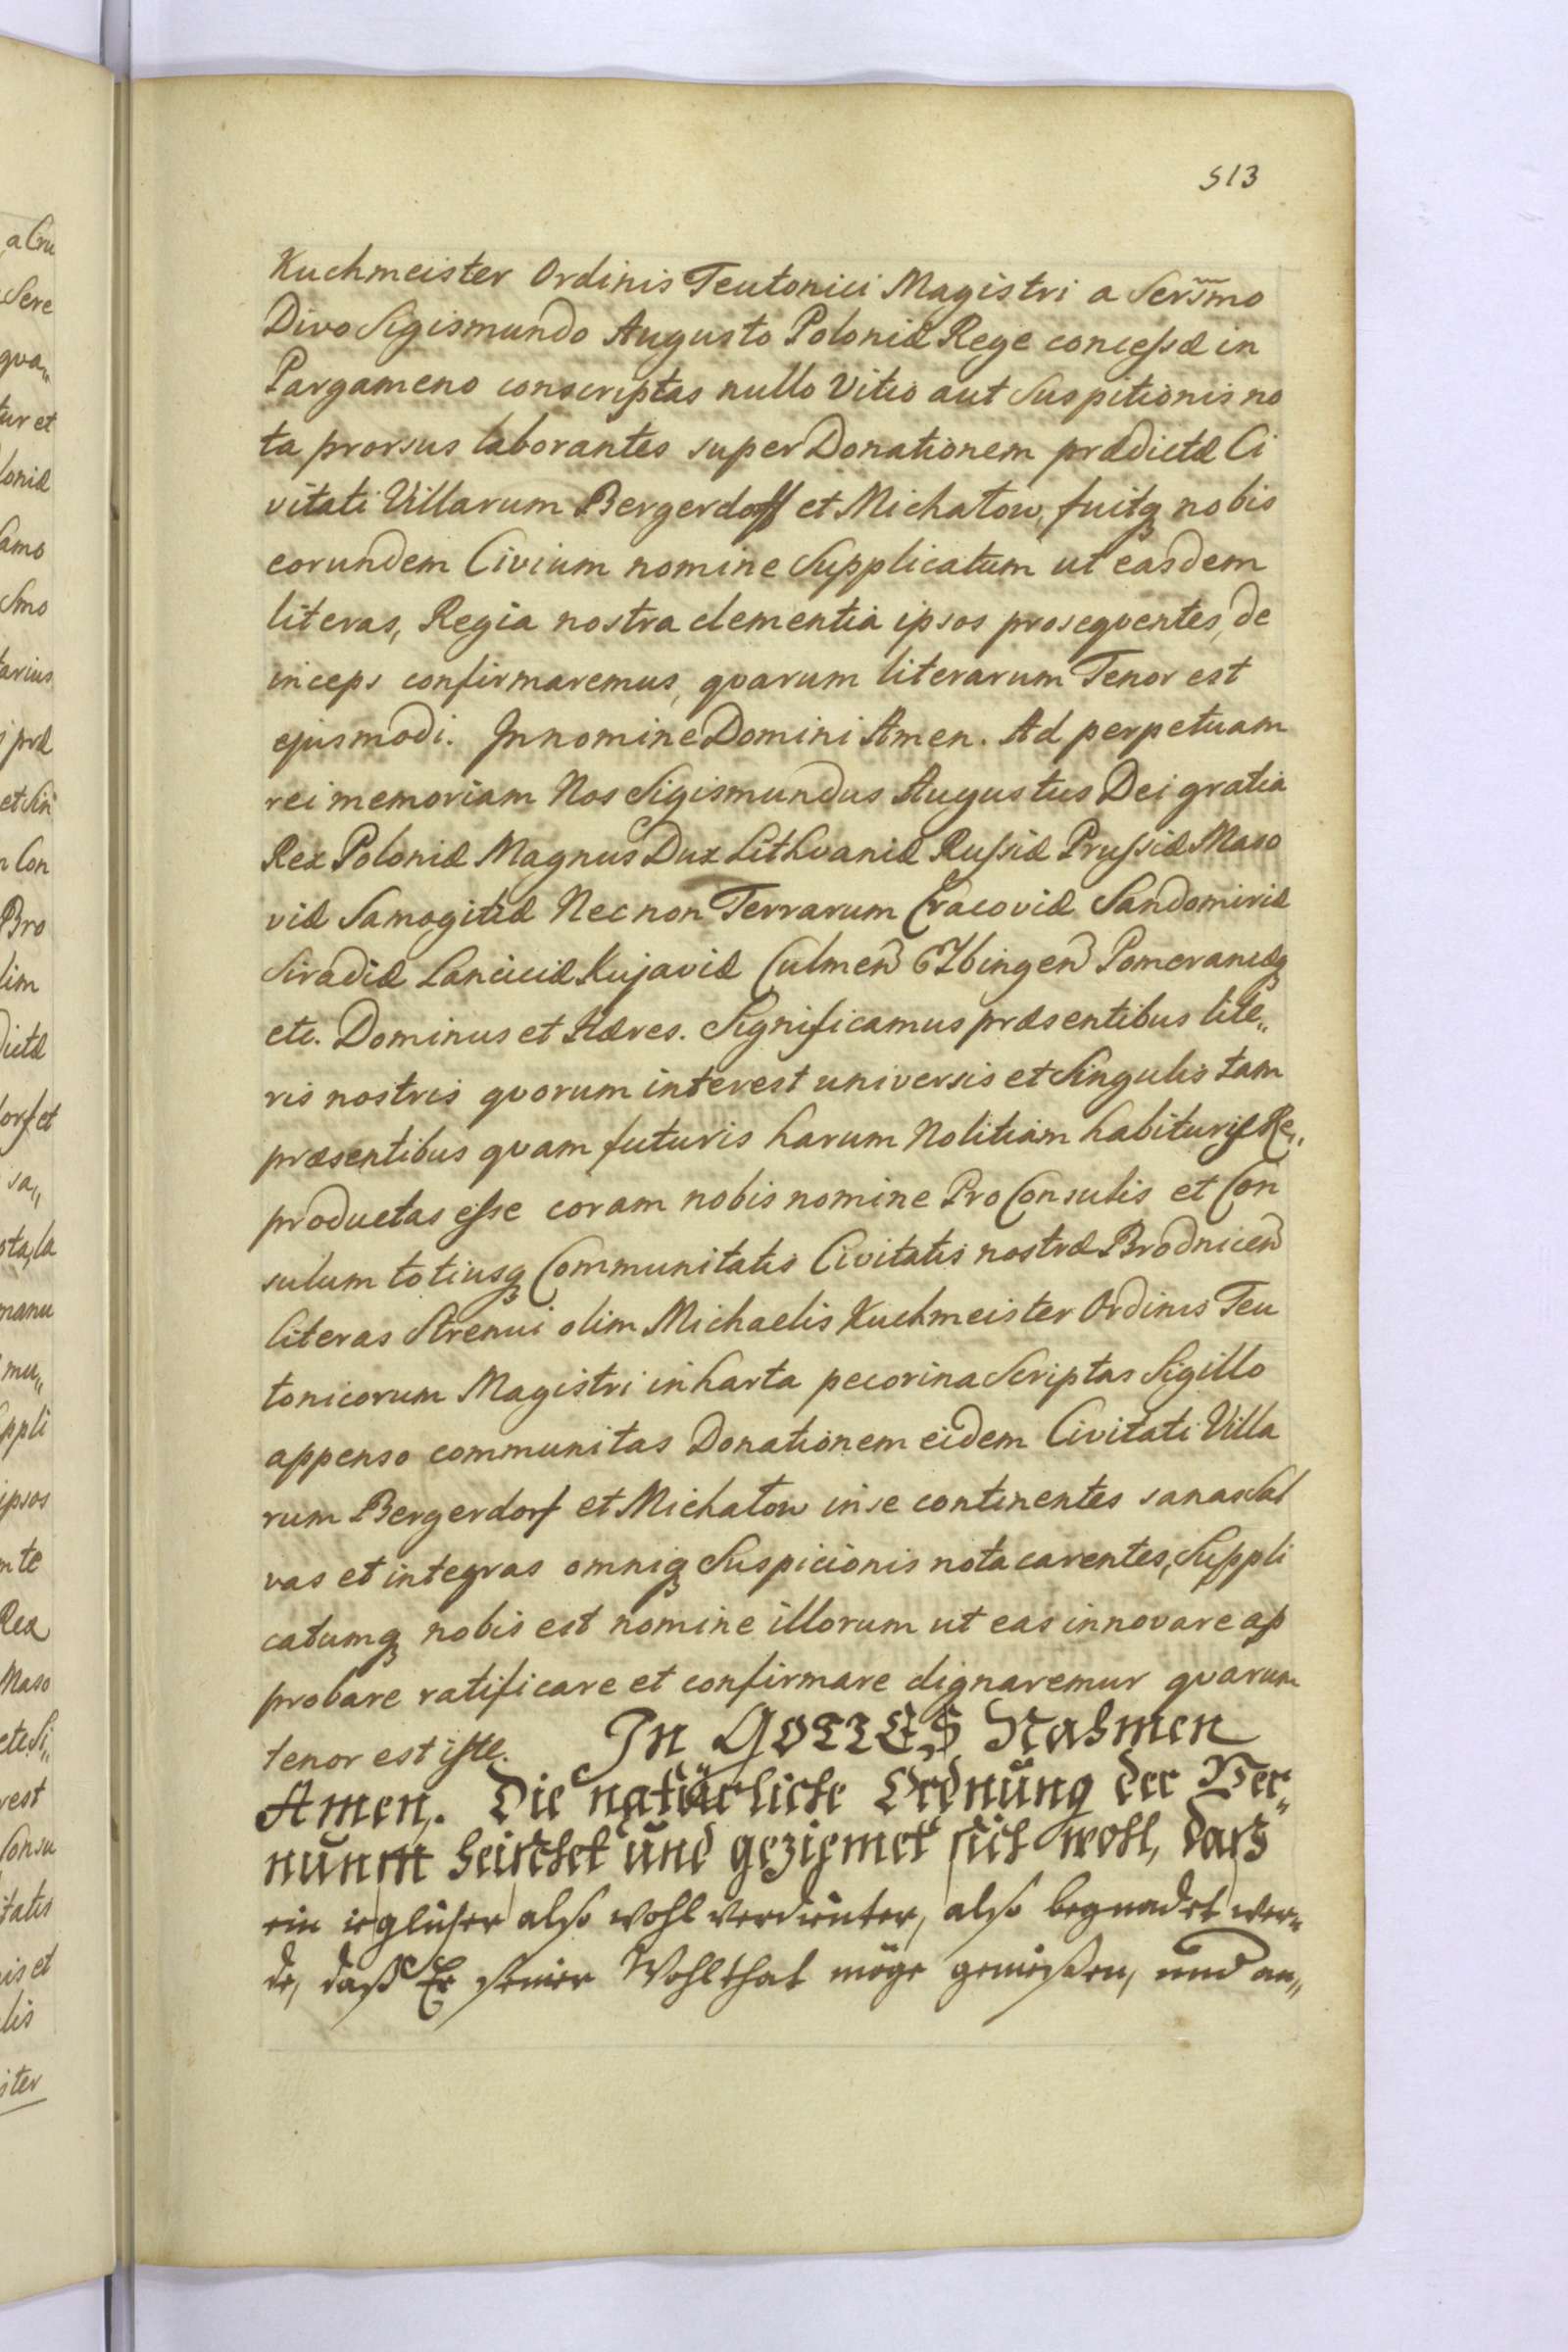 513
Kuchmeister Ordinis Teutonici Magistri a Serssmo
Divo Sigismundo Augusto Poloniæ Rege concessæ in
Pargameno conscriptas nullo Vitio aut Suspitionis no
ta prorsus laborantes super Donationem prædictæ Ci
vitati Villarum Bergerdoff et Michałow, fuitq nobis
eorundem Civium nomine Supplicatum ut easdem
literas, Regia nostra clementia ipsos proseqventes, de
inceps confirmaremus, qvarum literarum Tenor est
ejusmodi. In nomine Domini Amen. Ad perpetuam
rei memoriam Nos Sigismundus Augustus Dei gratia
Rex Poloniæ Magnus Dux Lithvaniæ Russiæ Prussiæ Maso
viæ Samogitiæ Necnon Terrarum Cracoviæ Sandomiriæ
Siradiæ Lanciciæ Kujaviæ Culmen Elbingen Pomeraniæq
etc. Dominus et Hæres. Significamus præsentibus lite„
ris nostris qvorum interest universis et Singulis tam
præsentibus qvam futuris harum Notitiam habituris Re„
productas esse coram nobis nomine ProConsulis et Con
sulum totiusq Communitatis Civitatis nostræ Brodnicen
literas Strenui olim Michaelis Kuchmeister Ordinis Teu
tonicorum Magistri inharta pecorina Scriptas Sigillo
appenso communitas Donationem eidem Civitati Villa
rum Bergerdorf et Michałow inse continentes sanas Sal
vas et integras omniq Suspicionis nota carentes, Suppli
catumq nobis est nomine illorum ut eas innovare ap
probare ratificare et confirmare dignaremur qvarum
tenor est iste. In GOTTES Nahmen
Amen. Die natürliche Ordnung der Ver„
nunnt heischet und geziemet sich wohl, dass
ein ieglicher also wohl verdienter, also begnadet wer„
de, daß Er seiner Wohlthat möge genießen, und an„
a Cru
Sere
qva„
tur et
loniæ
Camo
Smo
tarius
præ
et Sin
n Con
Bro
lim
dictæ
dorf et
sa„
sta, la
manu
mu„
ppli
ipsos
nte
Rex
Maso
etc. Si„
rest
Consu
itatis
is et
lis
ister